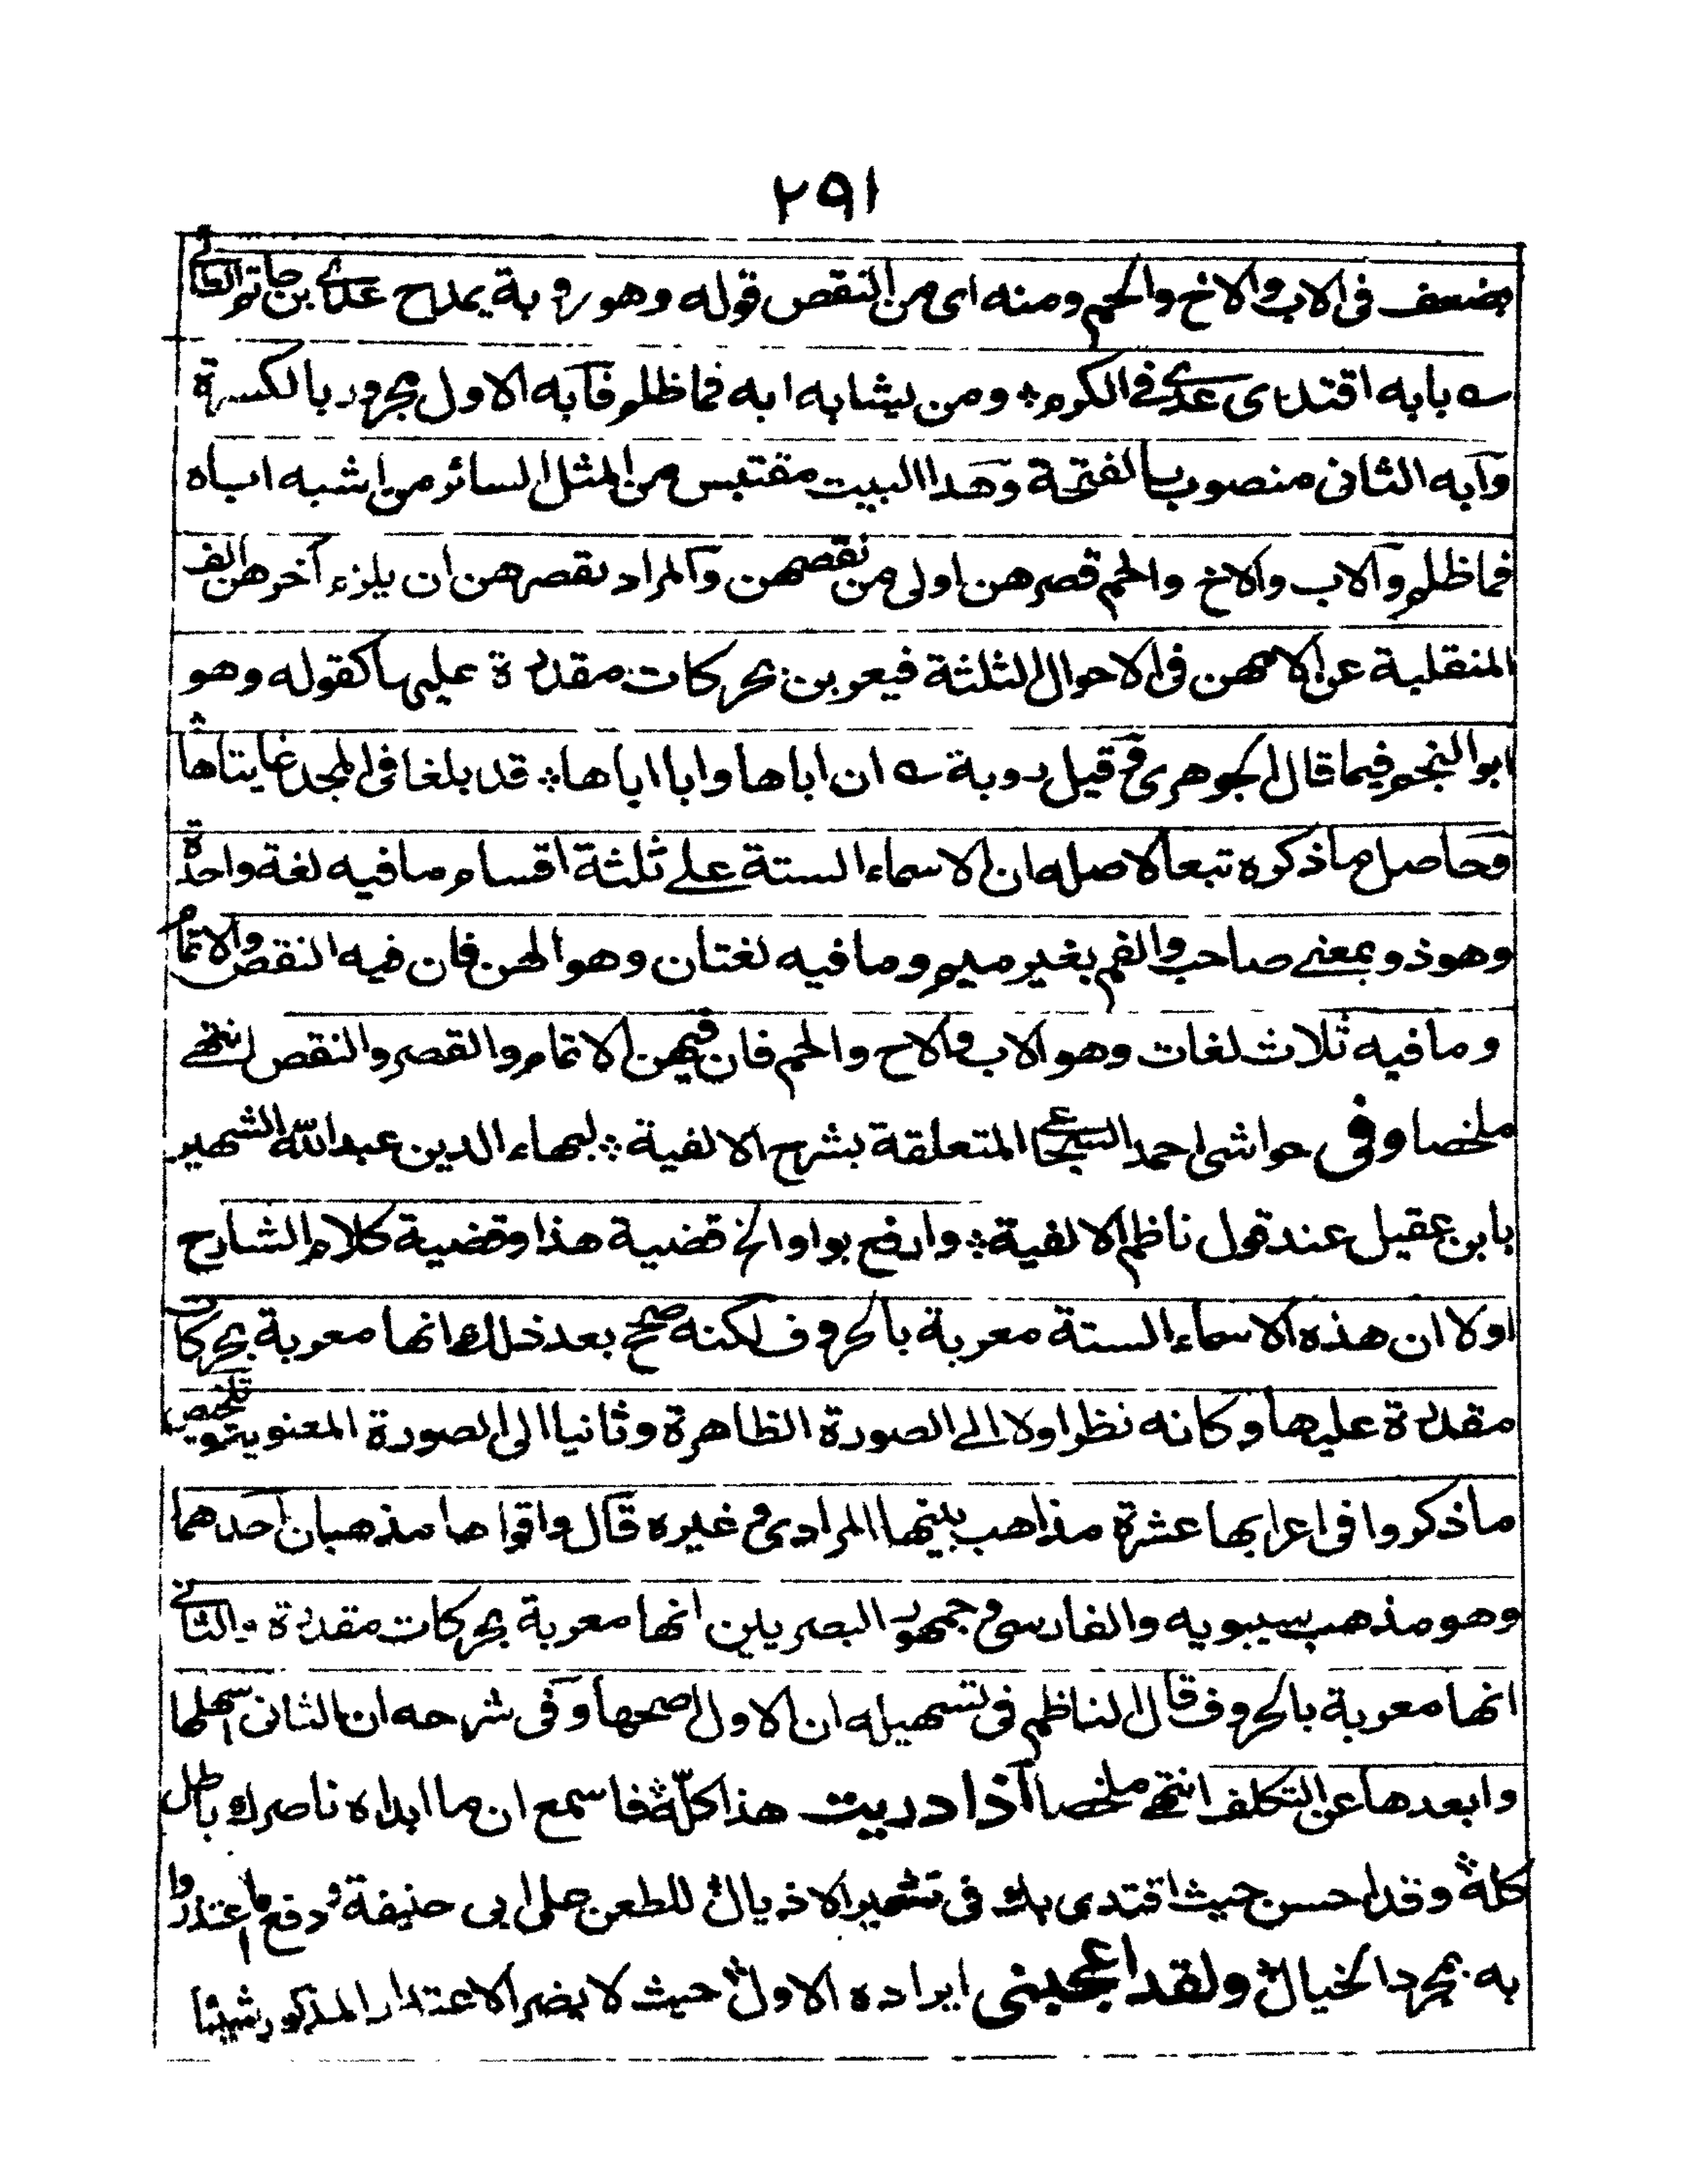 ٢٩١
بضعف فى الاب والاخ والحم ومنه اى من النقص قوله وهو روبة يمدح عدى بن حاتم الطائى
ـه بابه اقتدى عدى فى الكرم ❊ ومن يشابه ابه فما ظلم فابه الاول مجرور بالكسرة
وابه الثانى منصوب بالفتحة وهذا البيت مقتبس من المثل السائر من اشبه اباه
فما ظلم والاب والاخ والحم قصرهن اولى من نقصهن والمراد بقصرهن ان يلزم آخرهن الف
المنقلبة عن لامهن فى الاحوال الثلثة فيعربن بحركات مقدرة عليها كقوله وهو
ابو النجم فيما قال الجوهرى وقيل روبة ـه ان اباها وابا اباها ❊ قد بلغا فى المجد غايتاها
وحاصل ما ذكره تبعا لاصله ان الاسماء الستة على ثلثة اقسام ما فيه لغة واحدة
وهو ذو بمعنى صاحب والفم بغير ميم وما فيه لغتان وهو الهن فان فيه النقص والاتمام
وما فيه ثلاث لغات وهو الاب والاح والحم فان فيهن الاتمام والقصر والنقص انتهى
ملخصا وفى حواشى احمد السجاعى المتعلقة بشرح الالفية ❊ لبهاء الدين عبد الله الشهير
بابن عقيل عند قول ناظم الالفية ❊ وارفع بواو الخ قضية هذا وقضية كلام الشارح
اولا ان هذه الاسماء الستة معربة بالحروف لكنه صحح بعد ذلك انها معربة بحركات
مقدرة عليها وكانه نظر اولا الى الصورة الظاهرة وثانيا الى الصورة المعنوية وتلخيص
ما ذكروا فى اعرابها عشرة مذاهب بينها المرادى وغيره قال واقواها مذهبان احدهما
وهو مذهب سيبويه والفارسى وجمهور البصريين انها معربة بحركات مقدرة والثانى
انها معربة بالحروف قال الناظم فى تسهيله ان الاول اصحها وفى شرحه ان الثانى اسهلها
وابعدها عن التكلف انتهى ملخصا اذا دريت هذا كلّه فاسمع ان ما ابداه ناصرك باطل
كله وقد احسن حيث اقتدى بك فى تشمير الاذيال للطعن على ابى حنيفة ودفع ما اعتذروا
به بمجرد الخيال ولقد اعجبنى ايراده الاول حيث لا يضر الاعتذار المذكور شيئا